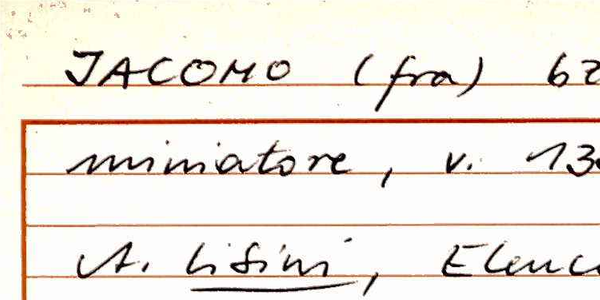 JACOMO (fra) 62
miniatore, v. 13
A. Lisini, Elenc